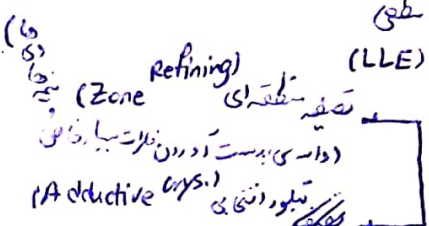 سطحی
(LLE)
تصفیه منطقه‌ای (Zone Refining)
(برای بدست آوردن فلزات بسیار خالص)
تبلور انتخابی (Adductive Crys.)